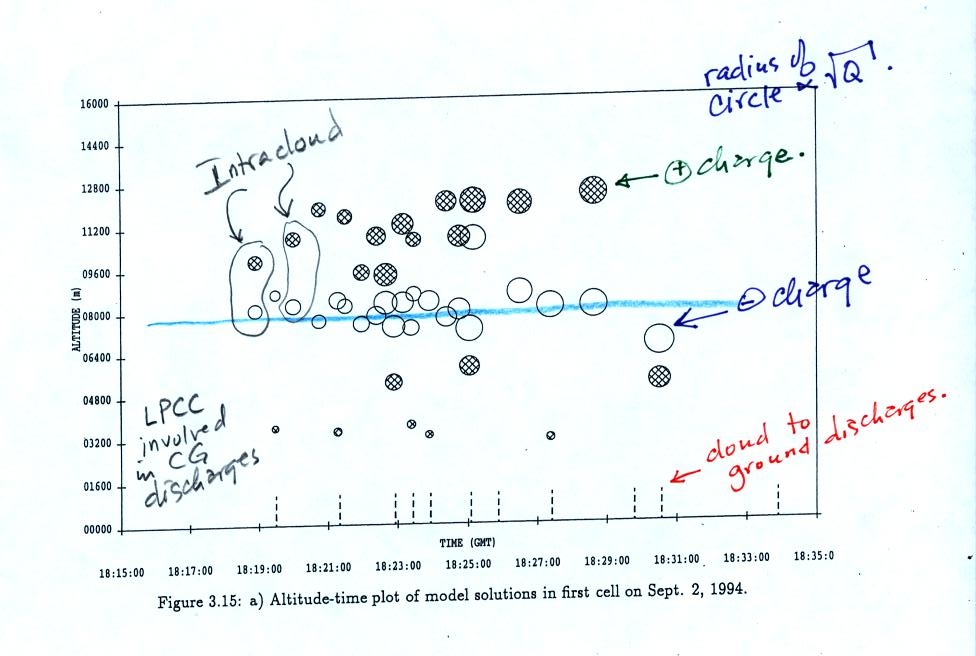 radius of
circle ∝ √Q.
16000
14400
Intracloud
12800
← ⊕ charge.
11200
09600
⊖ charge
ALTITUDE (m)
08000
06400
04800
LPCC
involved
in CG
discharges
cloud to
ground discharges.
03200
01600
00000
TIME (GMT)
18:15:00 18:17:00 18:19:00 18:21:00 18:23:00 18:25:00 18:27:00 18:29:00 18:31:00 18:33:00 18:35:0
Figure 3.15: a) Altitude-time plot of model solutions in first cell on Sept. 2, 1994.